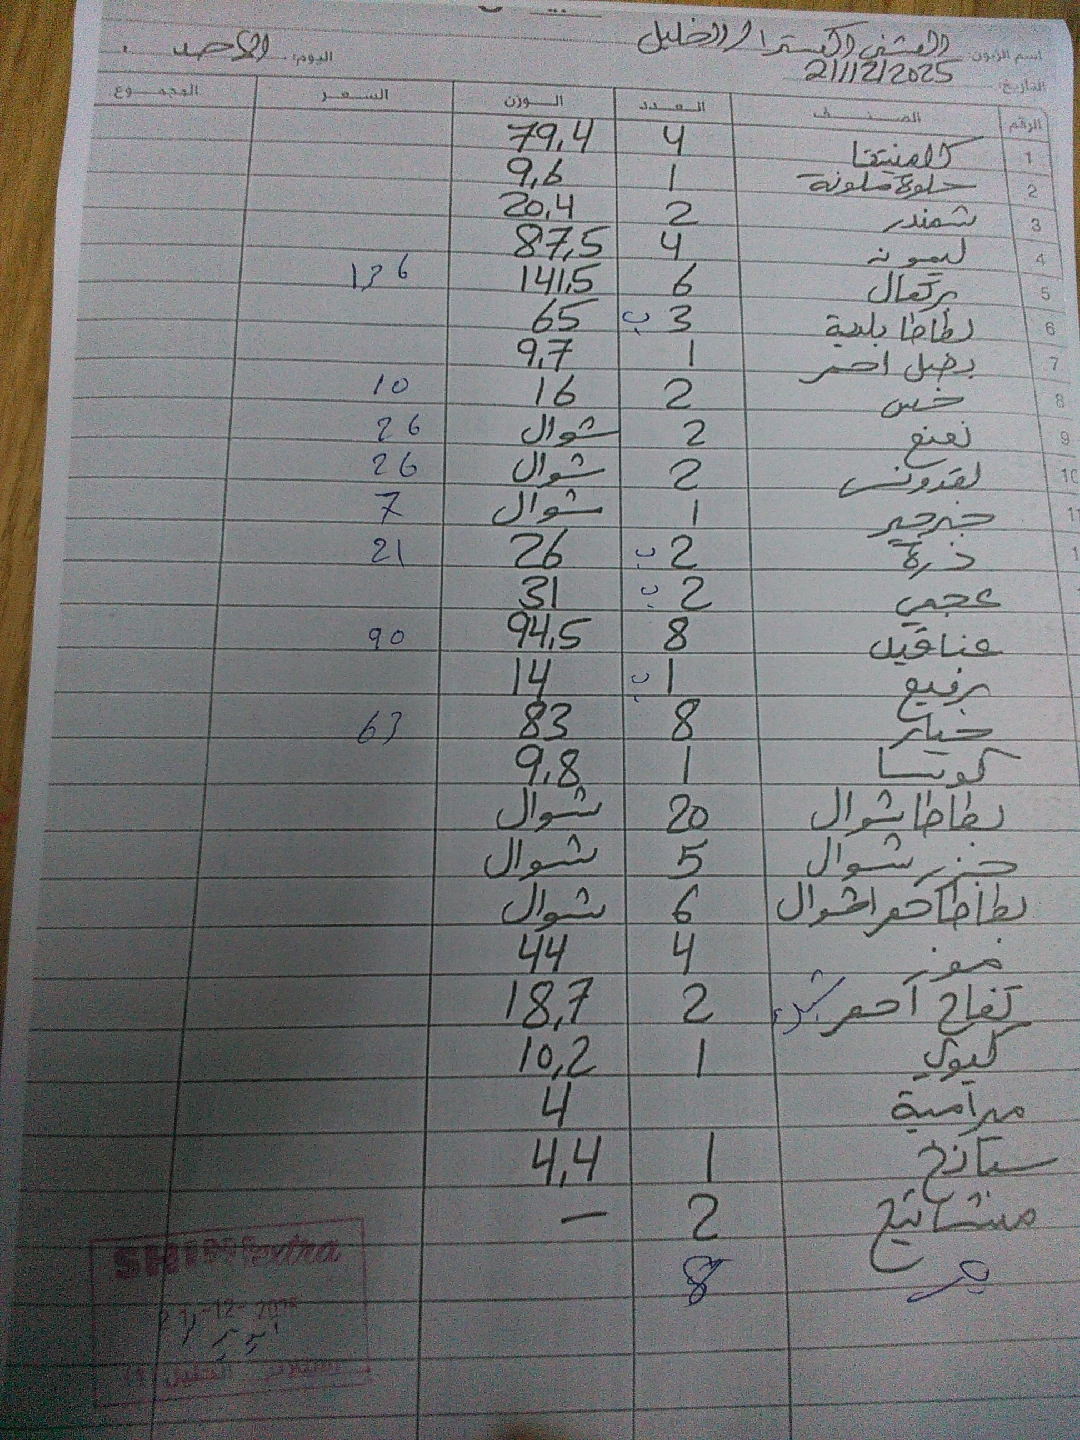 اسم الزبون: الشني اكسترا / الخليل اليوم: الأحد
التاريخ: 21/12/2025
الرقم الصنف العدد الوزن السعر المجموع
1 كلمنتينا 4 79,4
2 حلوة ملونة 1 9,6
3 شمندر 2 20,4
4 ليمونه 4 87,5
5 برتقال 6 141,5 136
6 بطاطا بلدية 3 ب 65
7 بصل احمر 1 9,7
8 خس 2 16 10
9 نعنع 2 شوال 26
10 بقدونس 2 شوال 26
11 جرجير 1 شوال 7
ذرة 2 ب 26 21
عجمي 2 ب 31
عناقيد 8 94,5 90
رفيع 1 ب 14
خيار 8 83 63
كوسا 1 9,8
بطاطا شوال 20 شوال
جزر شوال 5 شوال
بطاطا احمر شوال 6 شوال
موز 4 44
تفاح أحمر 2 18,7
كيوي 1 10,2
ميرامية 4
سبانخ 1 4,4
مشاتيح 2 —
8
SHINI extra
21-12-2025